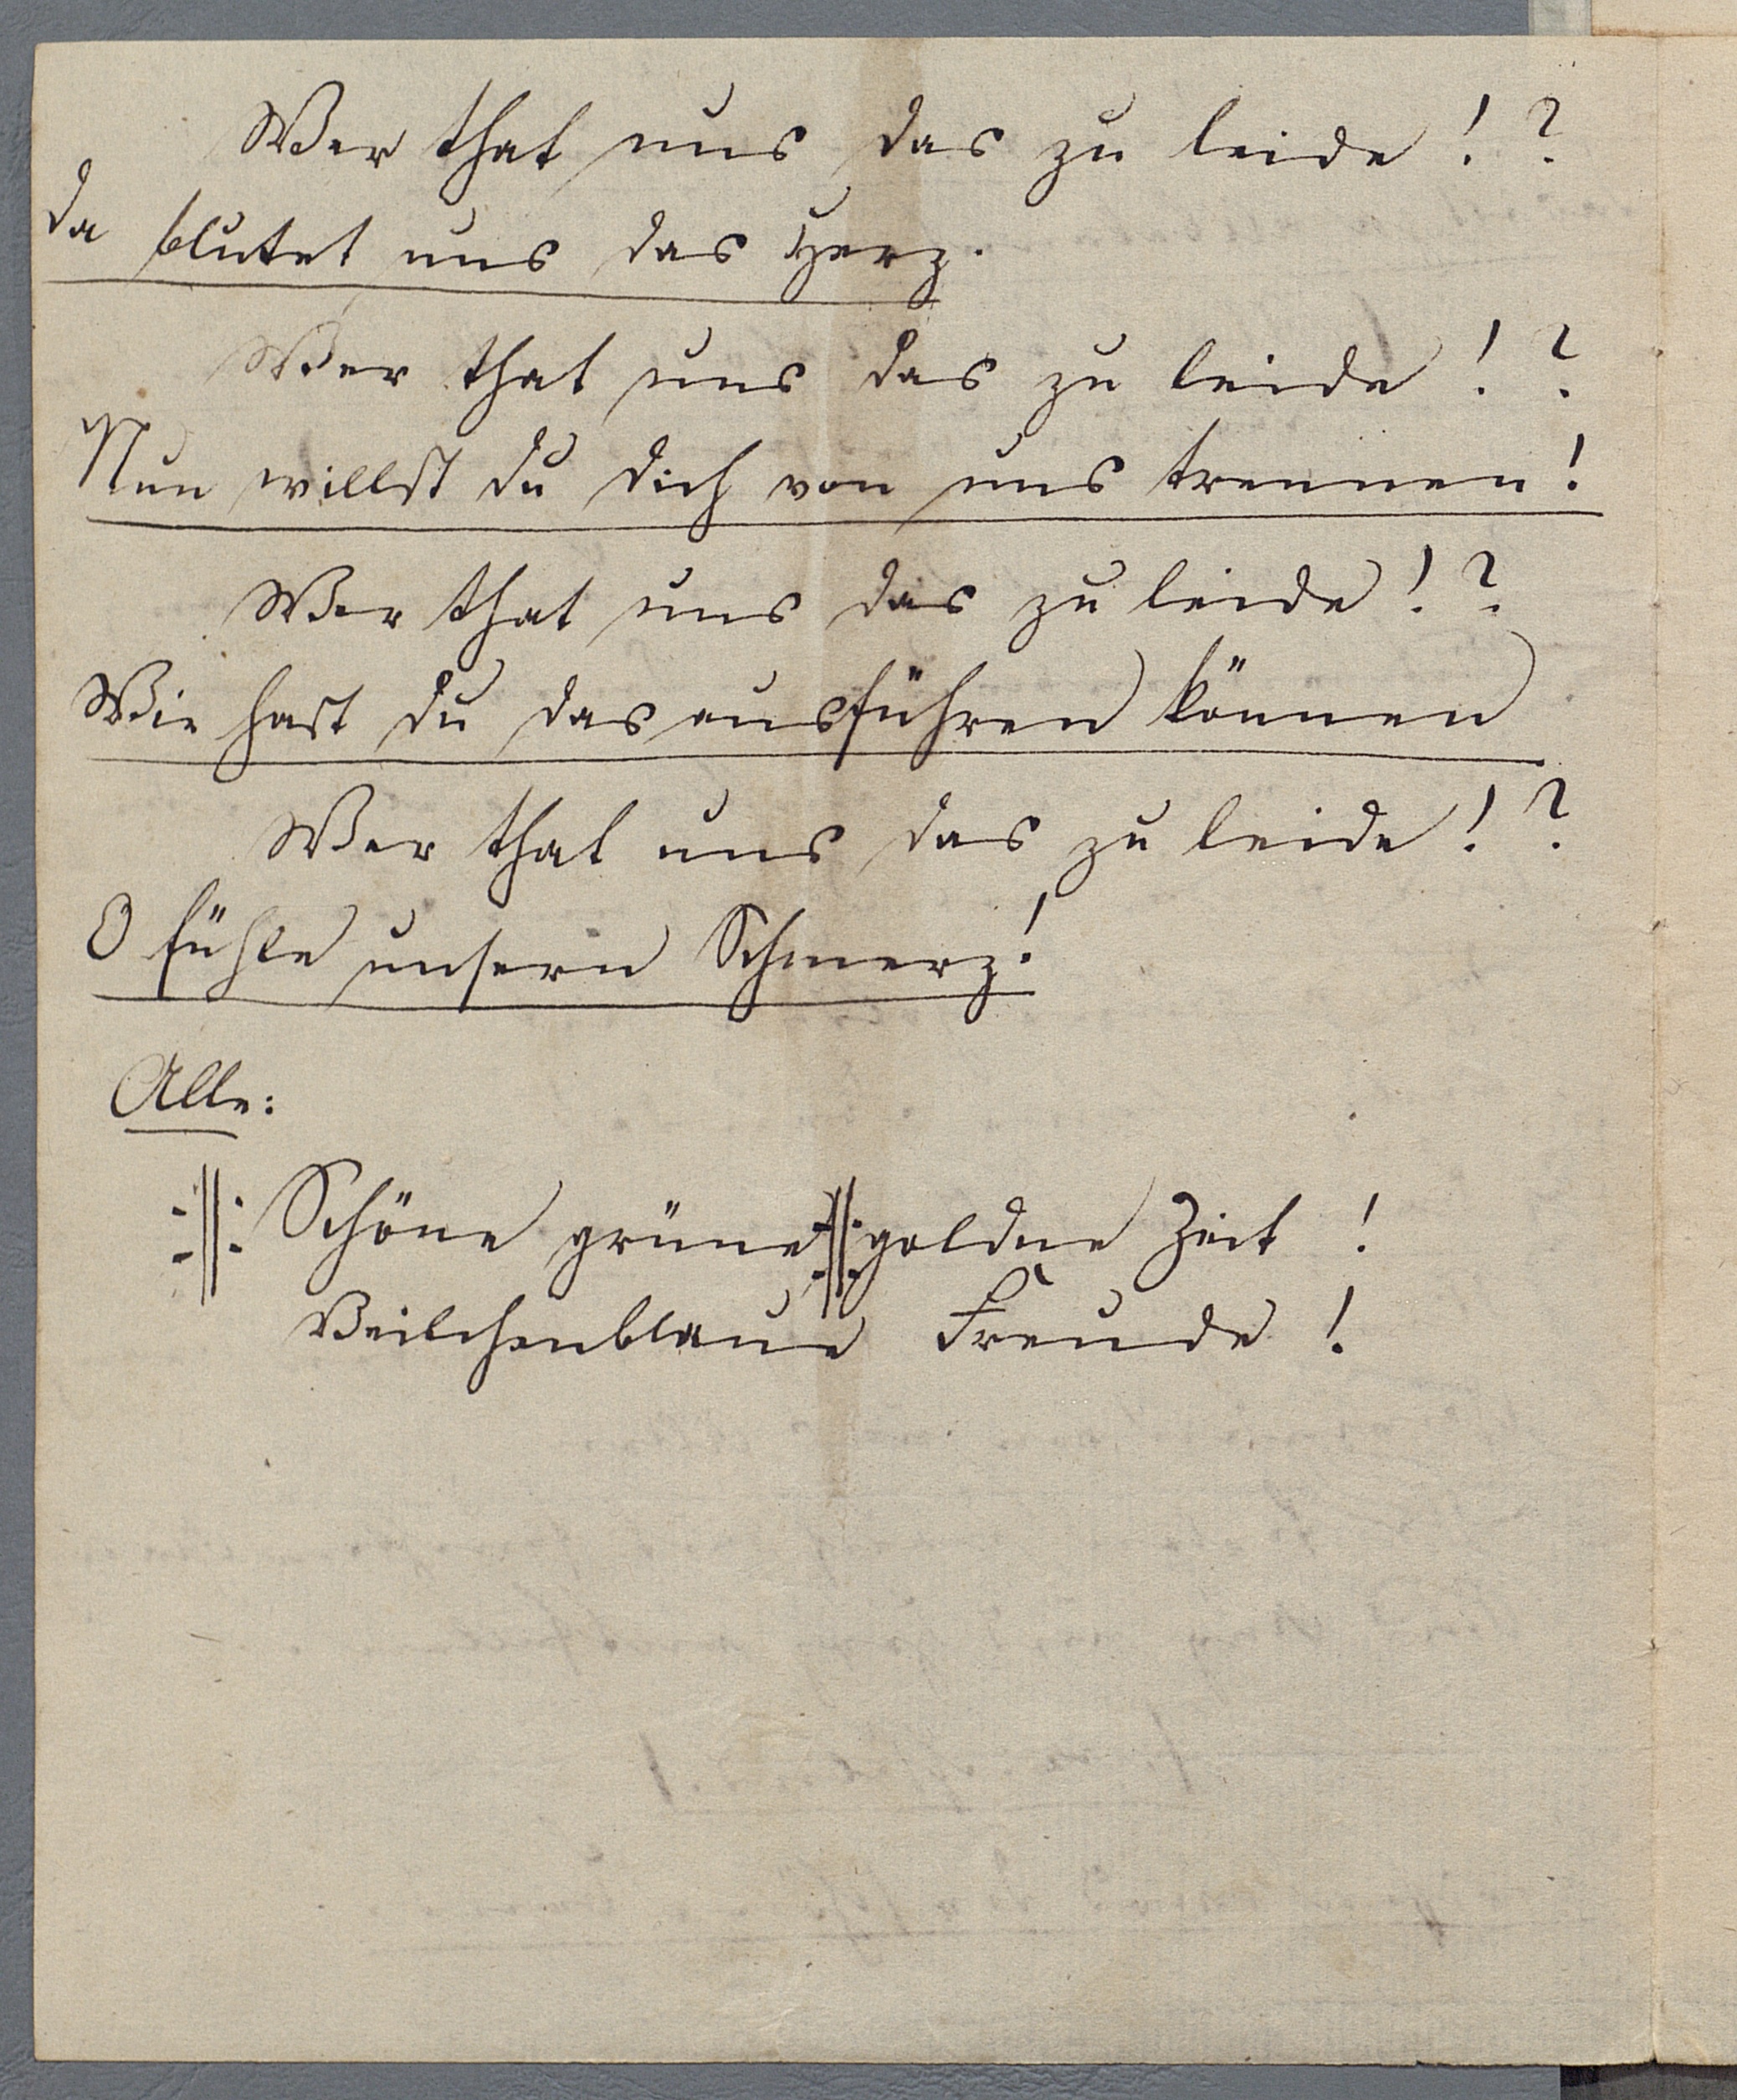 Wer that uns das zu leide!?
da blutet uns das Herz.
Wer that uns das zu leide!?
Nun willst du dich von uns trennen!
Wer that uns das zu leide!?
Wie hast du das ausführen können
Wer that uns das zu leide!?
O fühle unsern Schmerz!
Alle:
:||: Schöne grüne :||: goldne Zeit!
Veilchenblaue Freude!